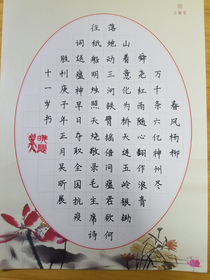 春风杨柳
万千条六亿神州尽
舜尧红雨随心翻作浪青
山着意化为桥天连五岭银锄
落地动三河铁臂摇借问瘟君欲何
往纸船明烛照天烧敬录毛主席诗
词送瘟神早日夺取全国抗疫
胜利庚子年正月吴昕
十一岁书